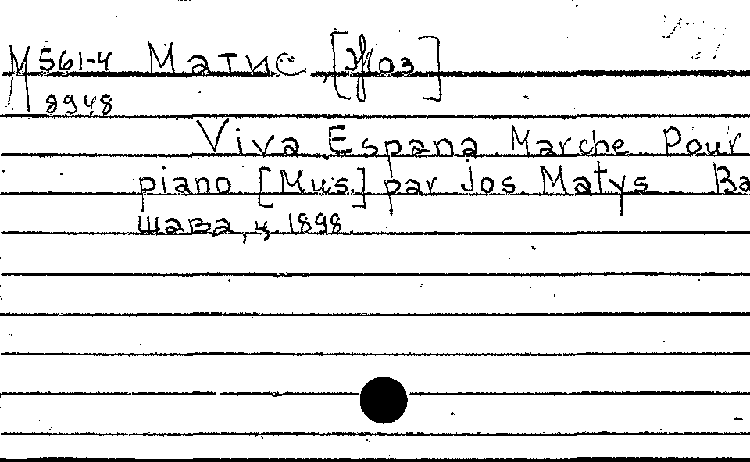 М 561-4 Матис, [Жоз]
8948
Viva Espana Marche Pour
piano [Mus.] par Jos Matys Ва
шава, ц. 1898.